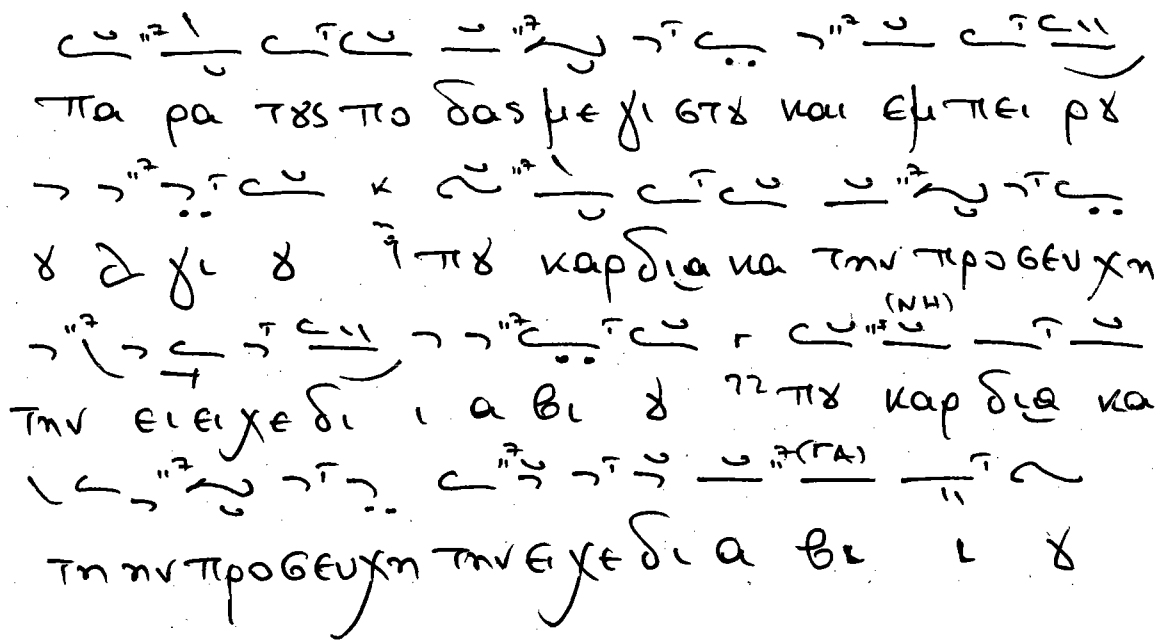 πα ρα τȣς πο δας με γι στȣ και εμ πει ρȣ
ȣ λ γι ȣ πȣ καρ δι α κα την προσευχη
(ΝΗ)
την ει ει χε δι ι α βι ȣ πȣ καρ δι α κα
(ΓΑ)
τη ην προσευχη την ει χε δι α βι ι ȣ